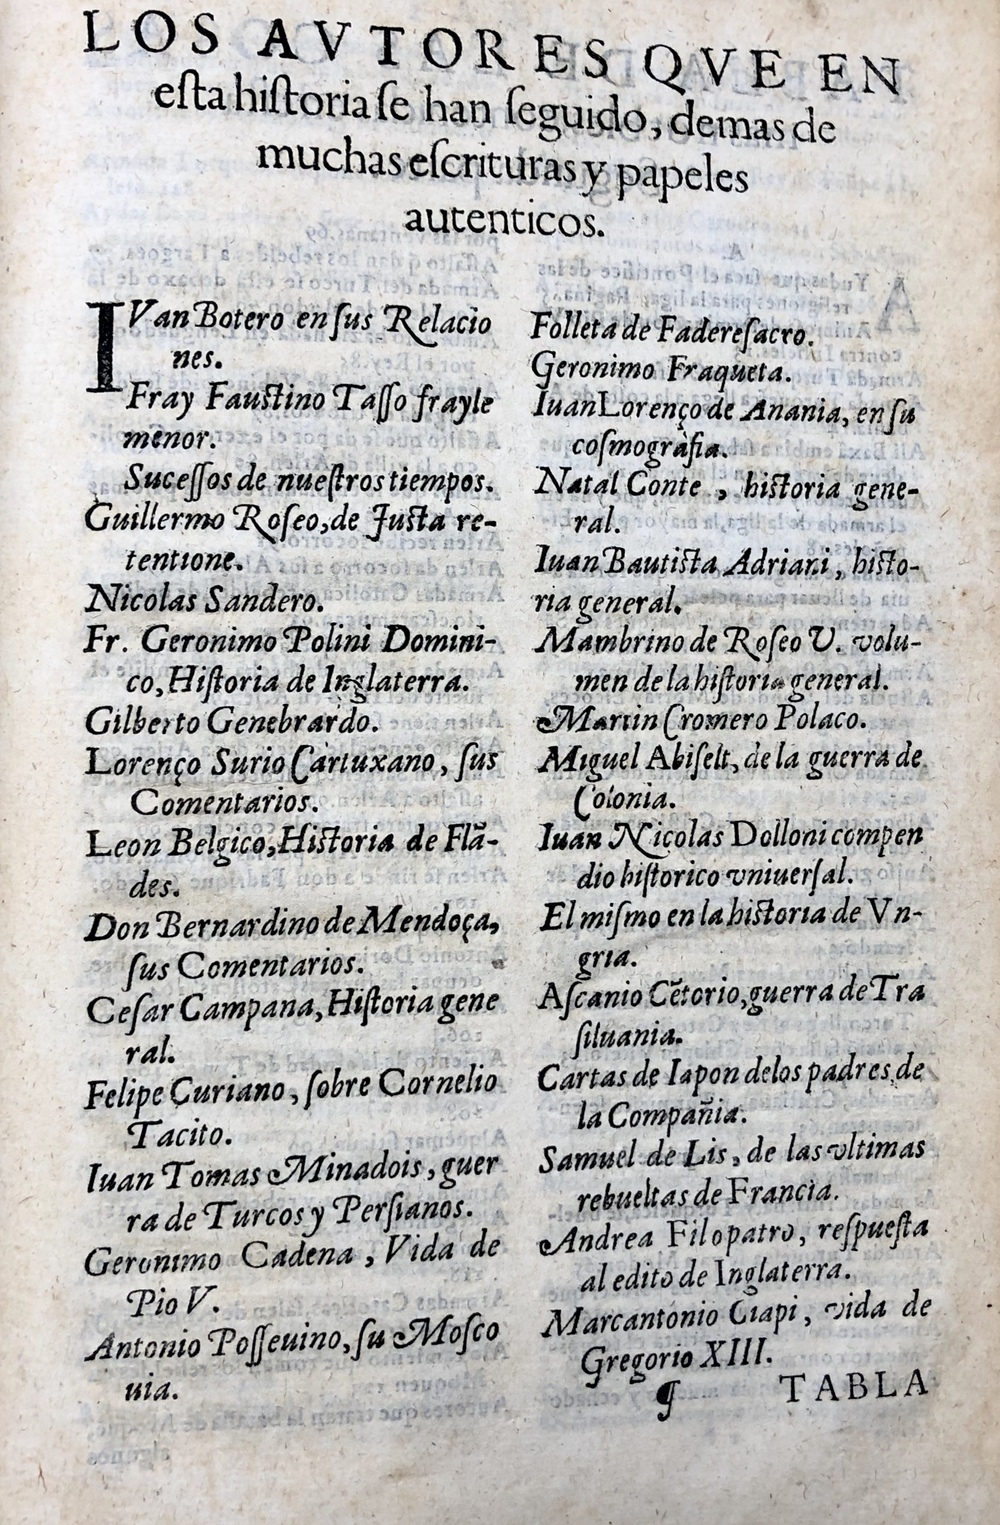 LOS AVTORES QVE EN
esta historia se han seguido, demas de
muchas escrituras y papeles
autenticos.
IVan Botero en sus Relacio
nes.
Fray Faustino Tasso frayle
menor.
Sucessos de nuestros tiempos.
Guillermo Roseo, de Justa re-
tentione.
Nicolas Sandero.
Fr. Geronimo Polini Domini-
co, Historia de Inglaterra.
Gilberto Genebrardo.
Lorenço Surio Cartuxano, sus
Comentarios.
Leon Belgico, Historia de Flã-
des.
Don Bernardino de Mendoça,
sus Comentarios.
Cesar Campana, Historia gene
ral.
Felipe Curiano, sobre Cornelio
Tacito.
Iuan Tomas Minadois, guer
ra de Turcos y Persianos.
Geronimo Cadena, Vida de
Pio V.
Antonio Posseuino, su Mosco
uia.
Folleta de Faderesacro.
Geronimo Fraqueta.
Iuan Lorenço de Anania, en su
cosmografia.
Natal Conte, historia gene-
ral.
Iuan Bautista Adriani, histo-
ria general.
Mambrino de Roseo V. volu-
men de la historia general.
Martin Cromero Polaco.
Miguel Abiselt, de la guerra de
Colonia.
Iuan Nicolas Dolloni compen
dio historico vniuersal.
El mismo en la historia de Vn-
gria.
Ascanio Cẽtorio, guerra de Tra
siluania.
Cartas de Iapon de los padres de
la Compañia.
Samuel de Lis, de las vltimas
rebueltas de Francia.
Andrea Filopatro, respuesta
al edito de Inglaterra.
Marcantonio Ciapi, vida de
Gregorio XIII.
¶ TABLA